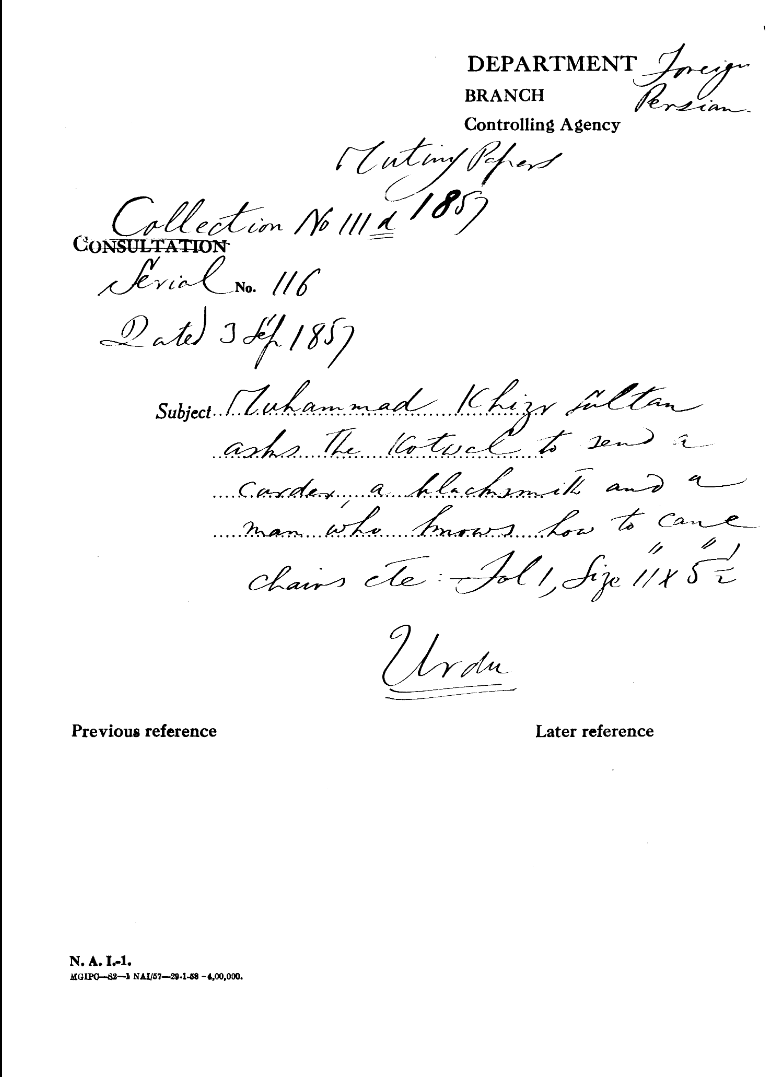 DEPARTMENT Foreign
BRANCH Persian
Controlling Agency
Mutiny Papers
1857
Collection No 111 d
CONSULTATION
Serial No. 116
Dated 3 Sep 1857
Subject Muhammad Khizr Sultan
asks the Kotwal to send a
carder, a blacksmith and a
man who knows how to cane
chairs etc :- Fol 1, Size 11" x 5 1/2"
Urdu
Previous reference Later reference
N. A. I.-1.
MGIPC—S2—1 NAI/57—29-1-58 -4,00,000.